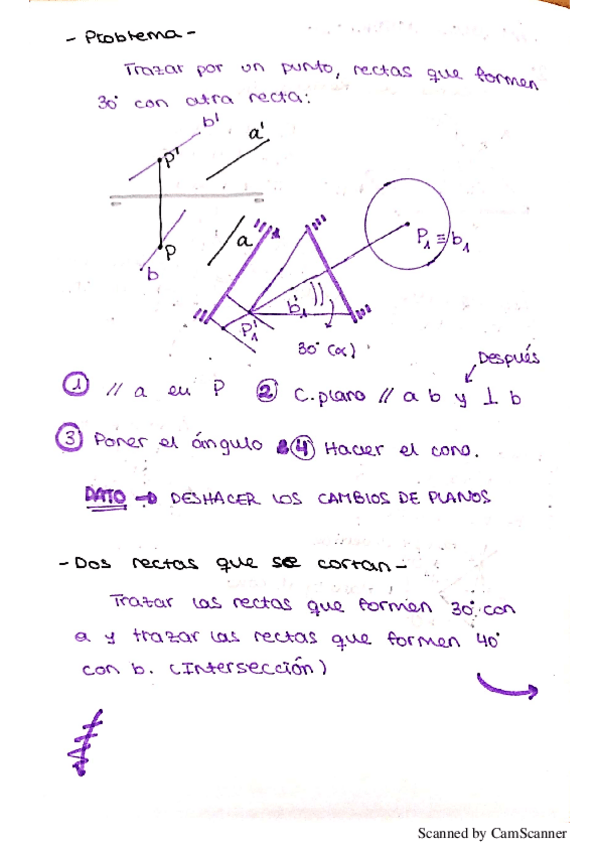 - Problema -
Trazar por un punto, rectas que formen
30° con otra recta:
b'
a'
P'
a
P
b
P₁≡b₁
b'₁
P'₁
30° (α)
Después
① // a en P ② C.plano // a b y ⊥ b
③ Poner el ángulo ④ Hacer el cono.
DATO → DESHACER LOS CAMBIOS DE PLANOS
- Dos rectas que se cortan -
Trazar las rectas que formen 30° con
a y trazar las rectas que formen 40°
con b. (Intersección)
Scanned by CamScanner